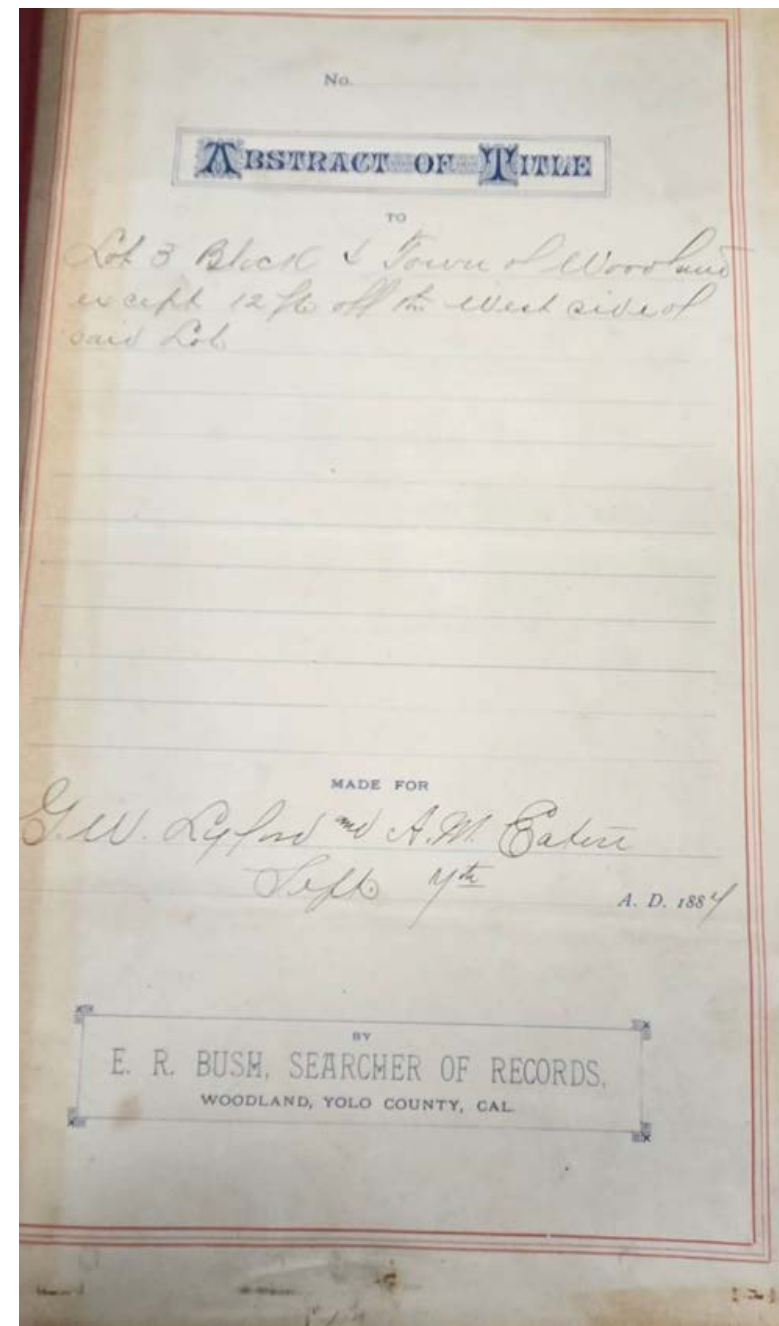 No.
ABSTRACT OF TITLE
TO
Lot 3 Block Town of Woodland
except 12 ft off the West side of
said Lot
MADE FOR
G. W. Lyford and A. M. Eaton
Sept 4th A. D. 1884
BY
E. R. BUSH, SEARCHER OF RECORDS,
WOODLAND, YOLO COUNTY, CAL.